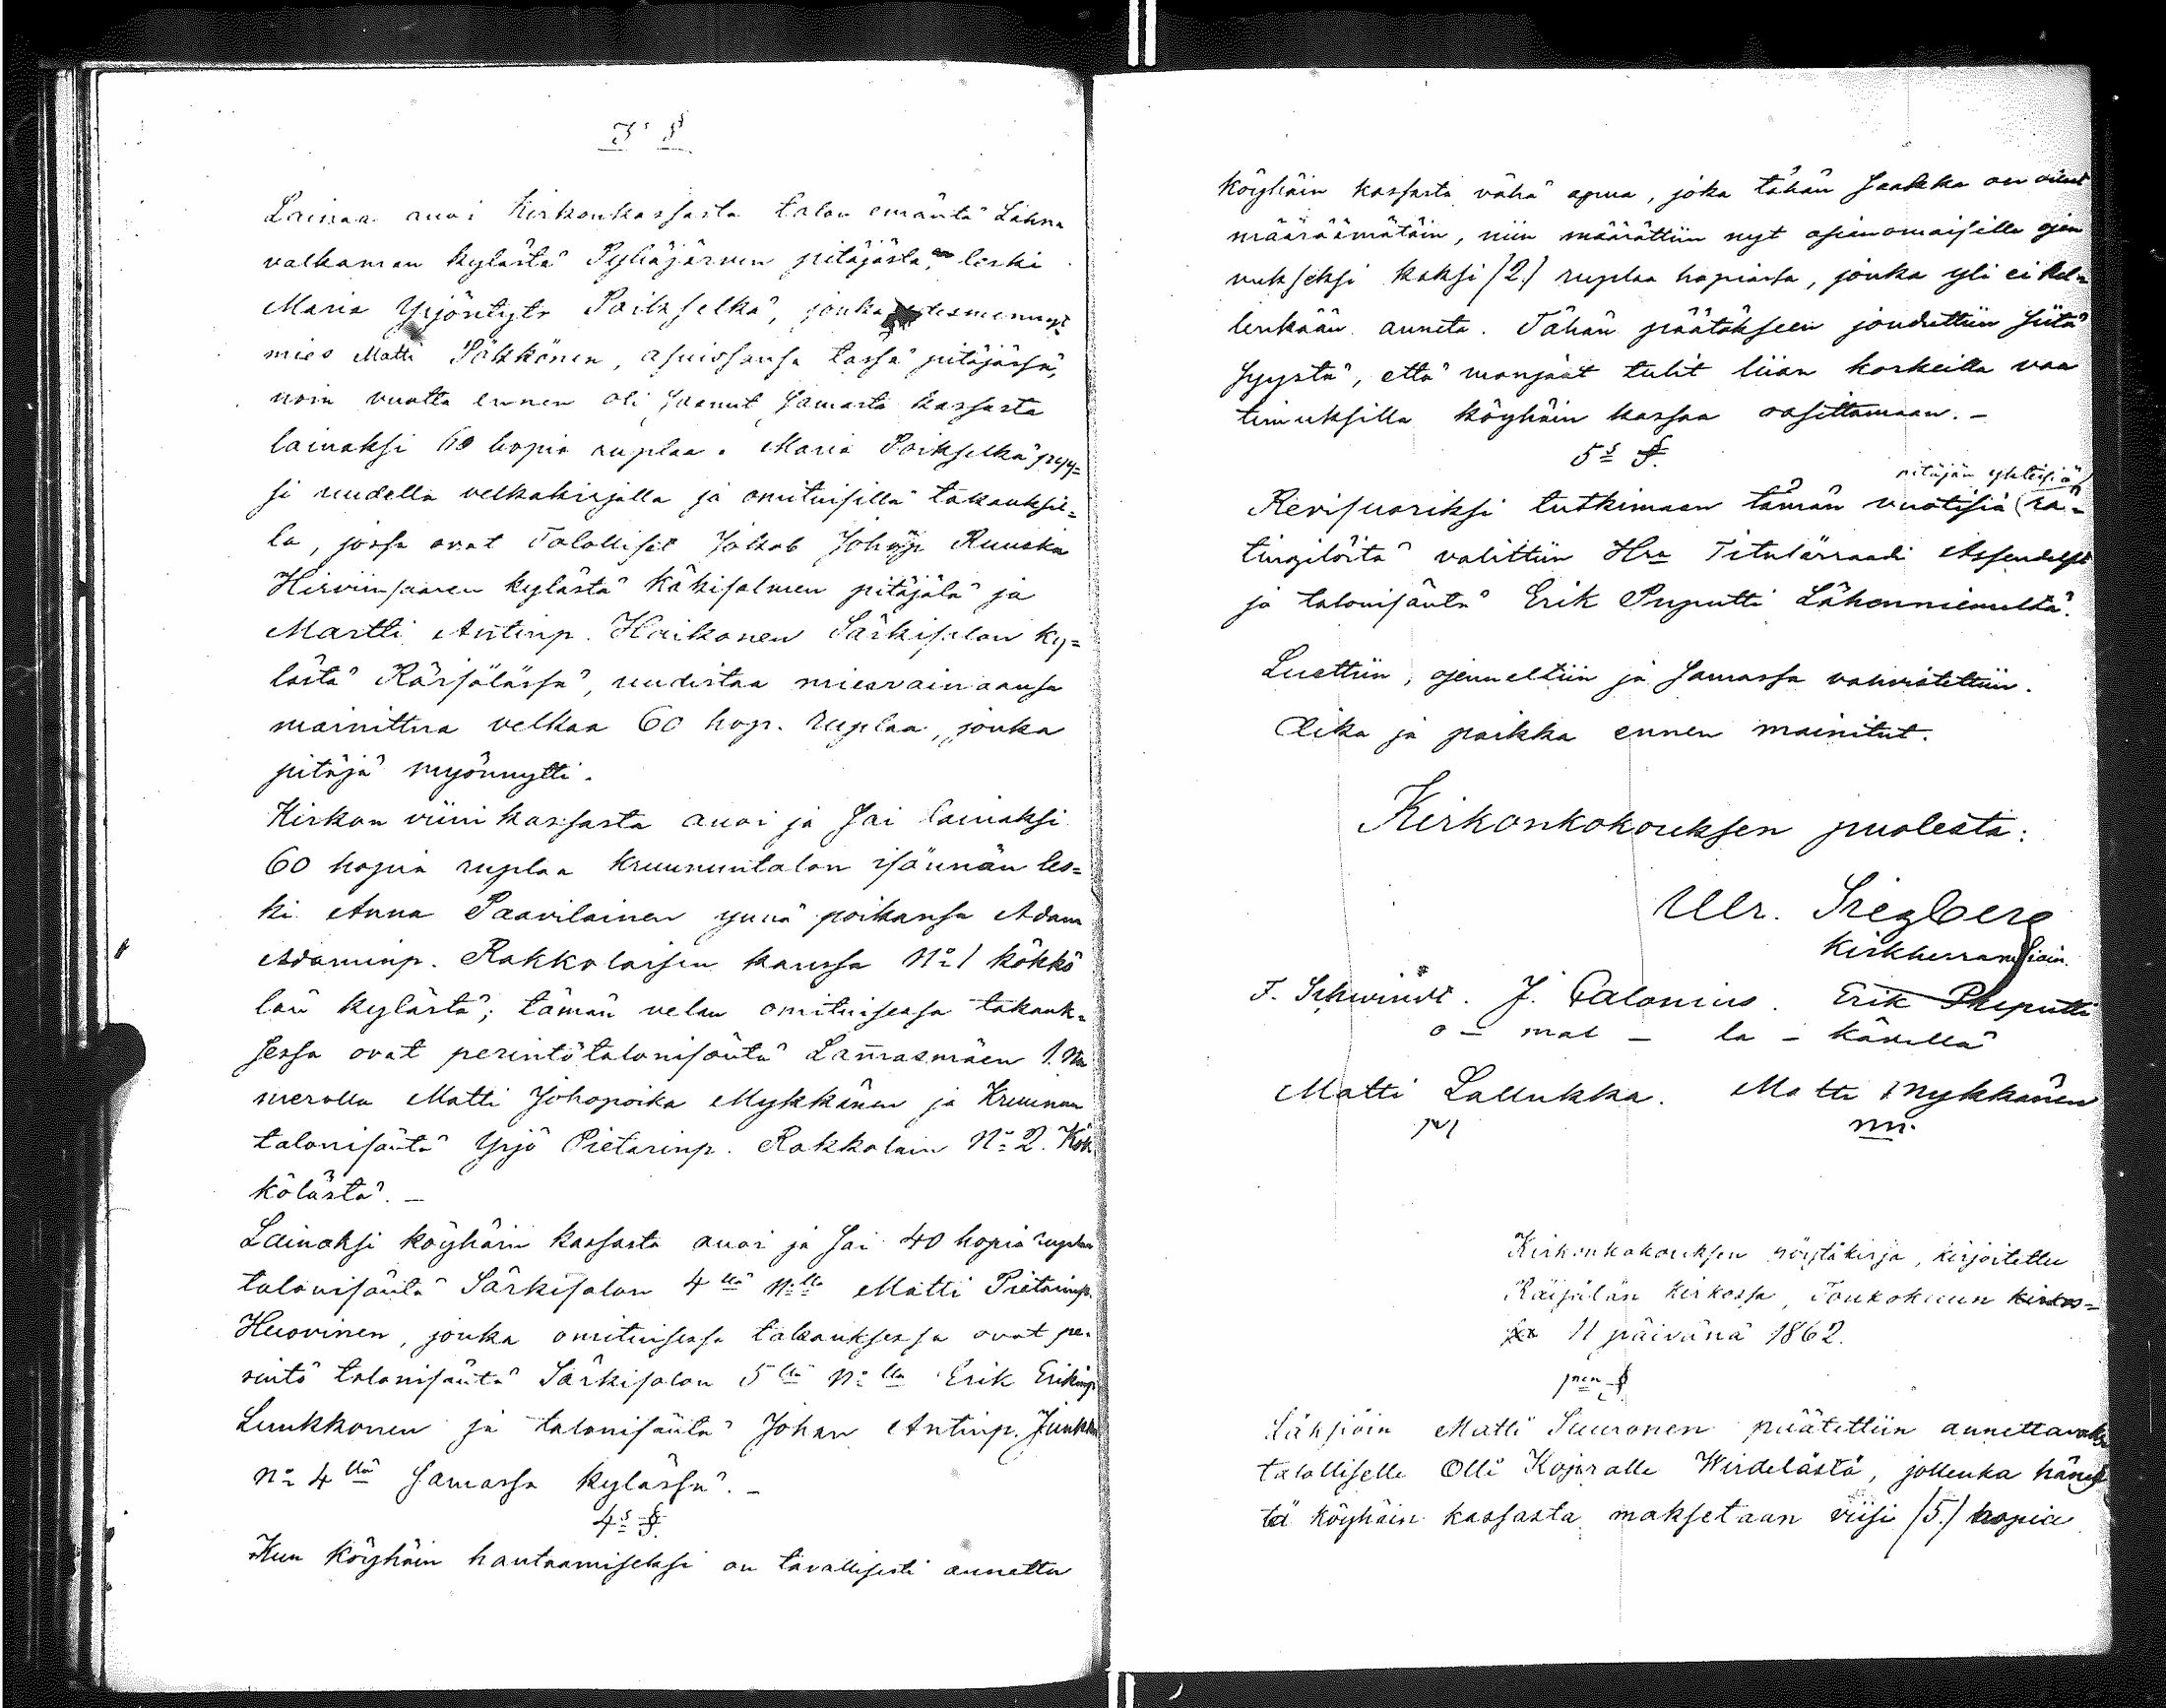 3s §
Lainaa anoi Kirkonkassasta talon emäntä Lahna
valkaman kylästä Pyhäjärven pitäjästä, leski
Maria Yrjöntytr Poikselkä, jonka edesmennyt
mies Matti Pökkönen, asuissansa tässä pitäjässä,
noin vuotta ennen oli saanut samasta kassasta
lainaksi 60 hopia ruplaa. Maria Poikselkä pyy=
si uudella velkakirjalla ja omituisilla takauksil=
la, jossa ovat Talolliset Jakob Johanp Ruuska
Hirviinsaaren kylästä Käkisalmen pitäjätä ja
Martti Antinp. Haikonen Särkisalon ky=
lästä Räisälässä, uudistaa miesvainaansa
mainittua velkaa 60 hop. ruplaa, jonka
pitäjä myönnytti.
Kirkon viini kassasta anoi ja sai lainaksi
60 hopia ruplaa kruununtalon isännän les=
ki Anna Paavilainen ynnä poikansa Adam
Adaminp. Rakkolaisen kanssa No 1 kökkö
län kylästä; tämän velan omituisessa takauk=
sessa ovat perintötalonisäntä Lammasmäen 1. Nu
merolla Matti Johopoika Mykkänen ja Kruunun
talonisäntä Yrjö Pietarinp. Rakkolain No 2. Kök
kölästä. –
Lainaksi köyhäin kassasta anoi ja sai 40 hopia ruplaa
talonisäntä Särkisalon 4llä No lla Matti Pietarinp.
Huovinen, jonka omituisessa takauksessa ovat pe=
rintö talonisäntä Särkisalon 5llä No lla Erik Erikinp
Luukkonen ja talonisäntä Johan Antinp. Junkk
No 4llä samassa kylässä. –
4s §.
Kun köyhäin hautaamiseksi on tavallisesti annettu
köyhäin kassasta vähä apua, joka tähän saakka on ollut
määräämätäin, niin määrättiin nyt asianomaisille ojen
nukseksi kaksi /2./ ruplaa hopiassa, jonka yli ei kel=
lenkään anneta. Tähän päätökseen jouduttiin siitä
syystä, että monjaat tulit liian korkeilla vaa
timuksilla köyhäin kassaa rasittamaan. –
5s §.
pitäjän yhteisiä
Revisuoriksi tutkimaan tämän vuotisia rä=
tingilöitä valittiin Hra Titulärraadi Assendelft
ja talonisäntä Erik Puputti Lähenniemeltä.
Luettiin, ojenneltiin ja samassa vahvistettiin.
Aika ja paikka ennen mainitut.
Kirkonkokouksen puolesta:
Ulr. Siegberg
Kirkherran siain.
F. Schwindt. J. Calonius. Erik Puputti
o – mal – la – kädellä
Matti Lallukka. Matti Mykkänen
Kirkonkokouksen pöytäkirja, kirjoitettu
Räisälän kirkossa, Toukokuun
11 päivänä 1862.
1nen §
Lähsiöin Matti Suuronen päätettiin annettavaksi
talolliselle Olli Kopralle Wirdelästä, jollenka hänes
tä köyhäin kassasta maksetaan viisi /5./ hopia